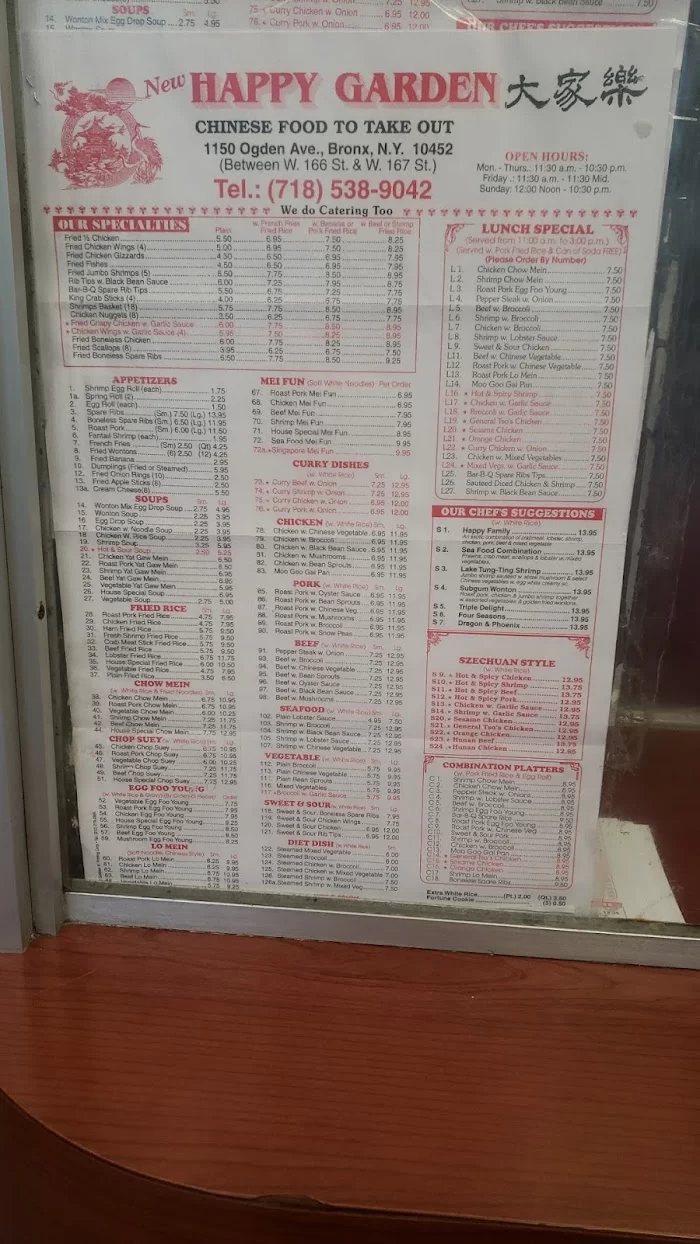 SOUPS
14. Wonton Mix Egg Drop Soup 2.75 4.95
75. Curry Chicken w. Onion 6.95 12.00
76. Curry Pork w. Onion 6.95 12.00
OUR CHEF'S SUGGESTIONS
New HAPPY GARDEN 大家樂
CHINESE FOOD TO TAKE OUT
1150 Ogden Ave., Bronx, N.Y. 10452
(Between W. 166 St. & W. 167 St.)
Tel.: (718) 538-9042
We do Catering Too
OPEN HOURS:
Mon. - Thurs.: 11:30 a.m. - 10:30 p.m.
Friday: 11:30 a.m. - 11:30 Mid.
Sunday: 12:00 Noon - 10:30 p.m.
OUR SPECIALTIES
Plain
w. French Fries Fried Rice
Pork Fried Rice
w. Beef or Shrimp Fried Rice
Fried ½ Chicken 5.50 6.95 7.50 8.25
Fried Chicken Wings (4) 5.00
Fried Chicken Gizzards 4.50
Fried Fishes
Fried Jumbo Shrimps (5)
Rib Tips w. Black Bean Sauce 6.00 7.25 7.95 8.75
Bar-B-Q Spare Rib Tips
King Crab Sticks (4) 4.00 6.25
Shrimps Basket (18) 5.75 7.75 8.50
Chicken Nuggets (8) 3.50 6.25 6.75 7.75
Fried Crispy Chicken w. Garlic Sauce 6.00 7.75 8.50 8.95
Chicken Wings w. Garlic Sauce (4)
Fried Boneless Chicken 6.00 7.75
Fried Scallops (8) 3.95 6.25 6.75 7.50
Fried Boneless Spare Ribs
LUNCH SPECIAL
(Served from 11:00 a.m. to 3:00 p.m.)
(Served w. Pork Fried Rice & Can of Soda FREE)
(Please Order By Number)
L 1. Chicken Chow Mein 7.50
L 2. Shrimp Chow Mein 7.50
L 3. Roast Pork Egg Foo Young 7.50
L 4. Pepper Steak w. Onion 7.50
L 5. Beef w. Broccoli 7.50
L 6. Shrimp w. Broccoli 7.50
L 7. Chicken w. Broccoli 7.50
L 8. Shrimp w. Lobster Sauce 7.50
L 9. Sweet & Sour Chicken 7.50
L11. Beef w. Chinese Vegetable 7.50
L12. Roast Pork w. Chinese Vegetable 7.50
L13. Roast Pork Lo Mein 7.50
L14. Moo Goo Gai Pan 7.50
L16. Hot & Spicy Shrimp 7.50
L17. Chicken w. Garlic Sauce 7.50
L18. Broccoli w. Garlic Sauce 7.50
L19. General Tso's Chicken 7.50
L20. Sesame Chicken 7.50
L21. Orange Chicken 7.50
L22. Curry Chicken w. Onion 7.50
L23. Chicken w. Mixed Vegetables 7.50
L24. Mixed Vegs. w. Garlic Sauce 7.50
L25. Bar-B-Q Spare Ribs Tips 7.50
L26. Sauteed Diced Chicken & Shrimp 7.50
L27. Shrimp w. Black Bean Sauce 7.50
APPETIZERS
1. Shrimp Egg Roll (each) 1.75
1a. Spring Roll (2) 2.25
2. Egg Roll (each) 1.50
3. Spare Ribs (Sm.) 7.50 (Lg.) 13.95
4. Boneless Spare Ribs (Sm.) 6.50 (Lg.) 11.95
5. Roast Pork (Sm.) 6.00 (Lg.) 11.50
6. Fantail Shrimp (each) 1.95
7. French Fries (Sm) 2.50 (Qt) 4.25
8. Fried Wontons (6) 2.50 (12) 4.25
9. Fried Banana
10. Dumplings (Fried or Steamed) 5.95
12. Fried Onion Rings (10) 2.50
13. Fried Apple Sticks (6) 2.50
13a. Cream Cheese(8) 5.50
SOUPS
14. Wonton Mix Egg Drop Soup 2.75 4.95
15. Wonton Soup 2.25 3.95
16. Egg Drop Soup 2.25 3.95
17. Chicken w. Noodle Soup 2.25 3.95
18. Chicken W. Rice Soup 2.25 3.95
19. Shrimp Soup 3.25 5.95
20. Hot & Sour Soup 2.50 5.25
21. Chicken Yat Gaw Mein
22. Roast Pork Yat Gaw Mein
23. Shrimp Yat Gaw Mein
24. Beef Yat Gaw Mein
25. Vegetable Yat Gaw Mein
26. House Special Soup
27. Vegetable Soup 2.75 5.00
FRIED RICE
28. Roast Pork Fried Rice 4.75 7.95
29. Chicken Fried Rice 4.75 7.95
30. Ham Fried Rice
31. Fresh Shrimp Fried Rice
32. Crab Meat Stick Fried Rice
33. Beef Fried Rice
34. Lobster Fried Rice
35. House Special Fried Rice 6.00 10.50
36. Vegetable Fried Rice 4.75 7.95
37. Plain Fried Rice 3.50 6.50
CHOW MEIN
38. Chicken Chow Mein 6.75 10.95
39. Roast Pork Chow Mein 6.75 10.95
40. Vegetable Chow Mein 6.00 10.25
41. Shrimp Chow Mein 7.25 11.75
42. Beef Chow Mein 7.25 11.75
44. House Special Chow Mein 7.75 12.95
CHOP SUEY (w. White Rice)
45. Chicken Chop Suey 6.75 10.95
46. Roast Pork Chop Suey 6.75 10.95
47. Vegetable Chop Suey 6.00 10.25
48. Shrimp Chop Suey 7.25 11.75
49. Beef Chop Suey 7.25 11.75
51. House Special Chop Suey 7.75 12.95
EGG FOO YOUNG
52. Vegetable Egg Foo Young 7.75
53. Roast Pork Egg Foo Young
54. Chicken Egg Foo Young
55. House Special Egg Foo Young
56. Shrimp Egg Foo Young
57. Beef Egg Foo Young
59. Mushroom Egg Foo Young
LO MEIN
60. Roast Pork Lo Mein
61. Chicken Lo Mein
62. Shrimp Lo Mein
63. Beef Lo Mein
MEI FUN (Soft White Noodles) Per Order
67. Roast Pork Mei Fun 6.95
68. Chicken Mei Fun 6.95
69. Beef Mei Fun 7.95
70. Shrimp Mei Fun 7.95
71. House Special Mei Fun 8.95
72. Sea Food Mei Fun 9.95
72a. Singapore Mei Fun 9.95
CURRY DISHES
(w. White Rice) Sm. Lg.
73. Curry Beef w. Onion 7.25 12.95
74. Curry Shrimp w. Onion 7.25 12.95
75. Curry Chicken w. Onion 6.95 12.00
76. Curry Pork w. Onion 6.95 12.00
CHICKEN (w. White Rice) Sm. Lg.
78. Chicken w. Chinese Vegetable 6.95 11.95
79. Chicken w. Broccoli 6.95 11.95
80. Chicken w. Black Bean Sauce 6.95 11.95
81. Chicken w. Mushrooms 6.95 11.95
82. Chicken w. Bean Sprouts 6.95 11.95
83. Moo Goo Gai Pan 6.95 11.95
PORK (w. White Rice) Sm. Lg.
85. Roast Pork w. Oyster Sauce 6.95 11.95
86. Roast Pork w. Bean Sprouts 6.95 11.95
87. Roast Pork w. Chinese Veg. 6.95 11.95
88. Roast Pork w. Mushrooms 6.95 11.95
89. Roast Pork w. Broccoli 6.95 11.95
90. Roast Pork w. Snow Peas 6.95 11.95
BEEF (w. White Rice) Sm. Lg.
91. Pepper Steak w. Onion 7.25 12.95
93. Beef w. Broccoli 7.25 12.95
94. Beef w. Chinese Vegetable 7.25 12.95
95. Beef w. Bean Sprouts 7.25 12.95
96. Beef w. Oyster Sauce 7.25 12.95
97. Beef w. Black Bean Sauce 7.25 12.95
98. Beef w. Mushrooms 7.25 12.95
SEAFOOD (w. White Rice) Sm. Lg.
102. Plain Lobster Sauce 4.95 7.50
103. Shrimp w. Broccoli 7.25 12.95
104. Shrimp w. Black Bean Sauce 7.25 12.95
105. Shrimp w. Lobster Sauce 7.25 12.95
107. Shrimp w. Chinese Vegetable 7.25 12.95
VEGETABLE (w. White Rice) Sm. Lg.
112. Plain Broccoli 5.75 9.95
113. Plain Chinese Vegetable 5.75 9.95
114. Plain Bean Sprouts 5.75 9.95
116. Mixed Vegetables 5.75 9.95
117. Broccoli w. Garlic Sauce 5.75 9.95
SWEET & SOUR (w. White Rice) Sm. Lg.
118. Sweet & Sour Boneless Spare Ribs 7.95
119. Sweet & Sour Chicken Wings 7.75
120. Sweet & Sour Chicken 6.95 12.00
121. Sweet & Sour Rib Tips 6.95 12.00
DIET DISH (w. White Rice)
122. Steamed Mixed Vegetable
123. Steamed Broccoli
124. Steamed Chicken w. Broccoli
125. Steamed Chicken w. Mixed Vegetable
126. Steamed Shrimp w. Broccoli
126a. Steamed Shrimp w. Mixed Veg.
OUR CHEF'S SUGGESTIONS
(w. White Rice)
S 1. Happy Family 13.95
S 2. Sea Food Combination 13.95
Prawns, crab meat, scallops & lobster w. mixed vegetables.
S 3. Lake Tung-Ting Shrimp 13.95
S 4. Subgum Wonton 13.95
S 5. Triple Delight 13.95
S 6. Four Seasons 13.95
S 7. Dragon & Phoenix 13.95
SZECHUAN STYLE
(w. White Rice)
S 9. Hot & Spicy Chicken 12.95
S10. Hot & Spicy Shrimp 13.75
S11. Hot & Spicy Beef 13.75
S12. Hot & Spicy Pork 12.95
S13. Chicken w. Garlic Sauce 12.95
S14. Shrimp w. Garlic Sauce 13.75
S20. Sesame Chicken 12.95
S21. General Tso's Chicken 12.95
S22. Orange Chicken 12.95
S23. Hunan Beef 13.75
S24. Hunan Chicken 12.95
COMBINATION PLATTERS
(w. Pork Fried Rice & Egg Roll)
C 1. Shrimp Chow Mein 8.95
C 2. Chicken Chow Mein 8.95
C 3. Pepper Steak w. Onions 8.95
C 4. Shrimp w. Lobster Sauce 8.95
C 5. Beef w. Broccoli 8.95
C 6. Shrimp Egg Foo Young 8.95
C 7. Bar-B-Q Spare Ribs
C 8. Roast Pork Egg Foo Young 8.95
C 9. Roast Pork w. Chinese Veg. 8.95
C10. Sweet & Sour Pork 8.95
Shrimp w. Broccoli 8.95
Chicken w. Broccoli 8.95
Moo Goo Gai Pan 8.95
General Tso's Chicken 8.95
Sesame Chicken 8.95
Orange Chicken 8.95
C17. Shrimp Lo Mein 8.95
C18. Boneless Spare Ribs 9.50
Extra White Rice (Pt.) 2.00 (Qt.) 3.50
Fortune Cookie (5) 0.50